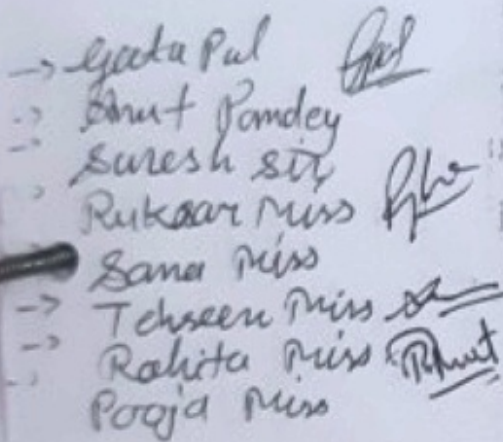 → Geeta Pal
→ Amut Pamdey
→ Suresh Sir
→ Ruksar Miss
Sana Miss
→ Tehseen Miss
→ Rohita Miss
→ Pooja Miss